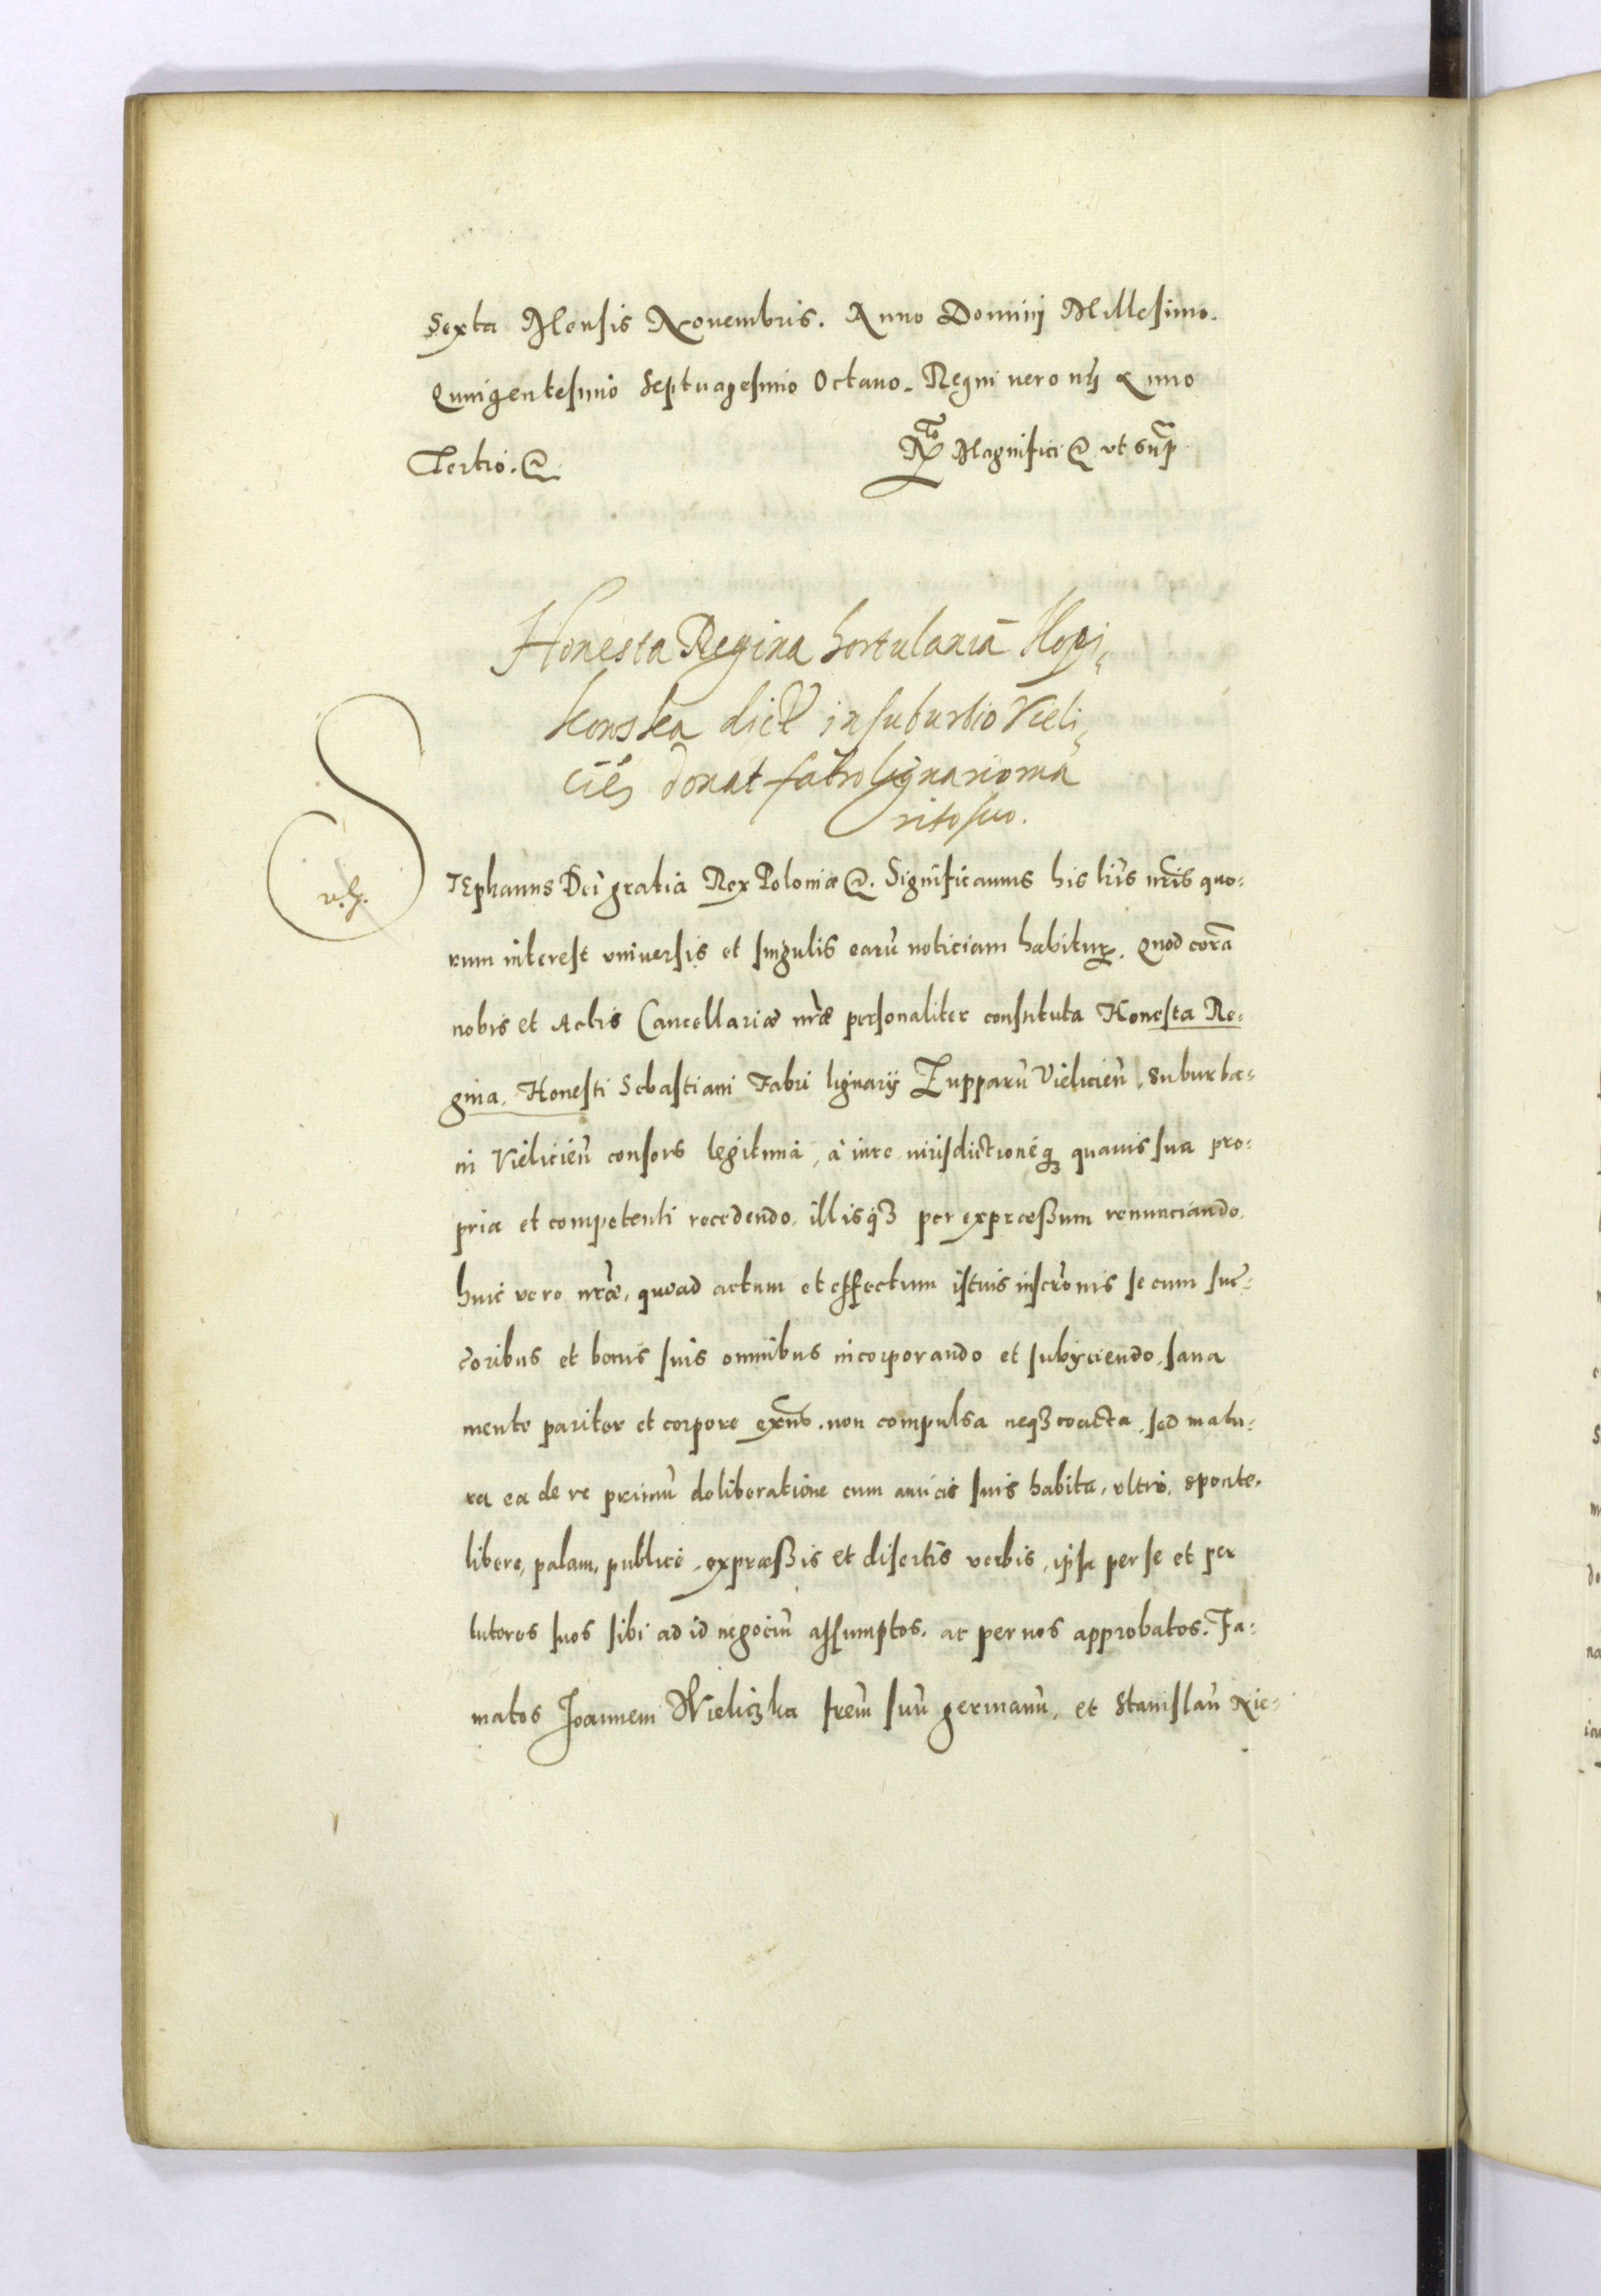 Sexta Mensis Nouembris. Anno Dominj Millesimo.
Quingentesimo Septuagesimo Octauo. Regni vero nrj Anno
Tertio. &
Rto Magnifici & vt supra
Honesta Regina hortulaniā Kopi„
konska dict in suburbio Vieli„
cień donat fabro lignario ma
rito suo.
v. g.
STEphanus Dei gratia Rex Poloniæ &. Significamus his lris nris quo:
rum interest vniuersis et singulis earū noticiam habitur. Quod corā
nobis et Actis Cancellariæ nræ personaliter constituta Honesta Re:
gina, Honesti Sebastiani Fabri lignarij Zupparū Vielicieñ, suburba:
ni Vieliciēn consors legitima, à iure iurisdictioneq3 quauis sua pro:
pria et competenti recedendo, illisq3 per expræßum renunciando.
huic vero nræ, quoad actum et effectum istius inscrōnis se cum suc:
coribus et bonis suis omnibus incorporando et subÿciendo, sana
mente pariter et corpore exñs. non compulsa neq3 coacta, sed matu:
ra ea de re primū deliberatione cum amicis suis habita, vltrò, sponte,
libere, palam, publicè, expræßis et disertis verbis, ipsa per se et per
tutores suos sibi ad id negociū assumptos, ac per nos approbatos. Fa:
matos Joannem Wieliczka frem suū germanū, et Stanislaū Nie: